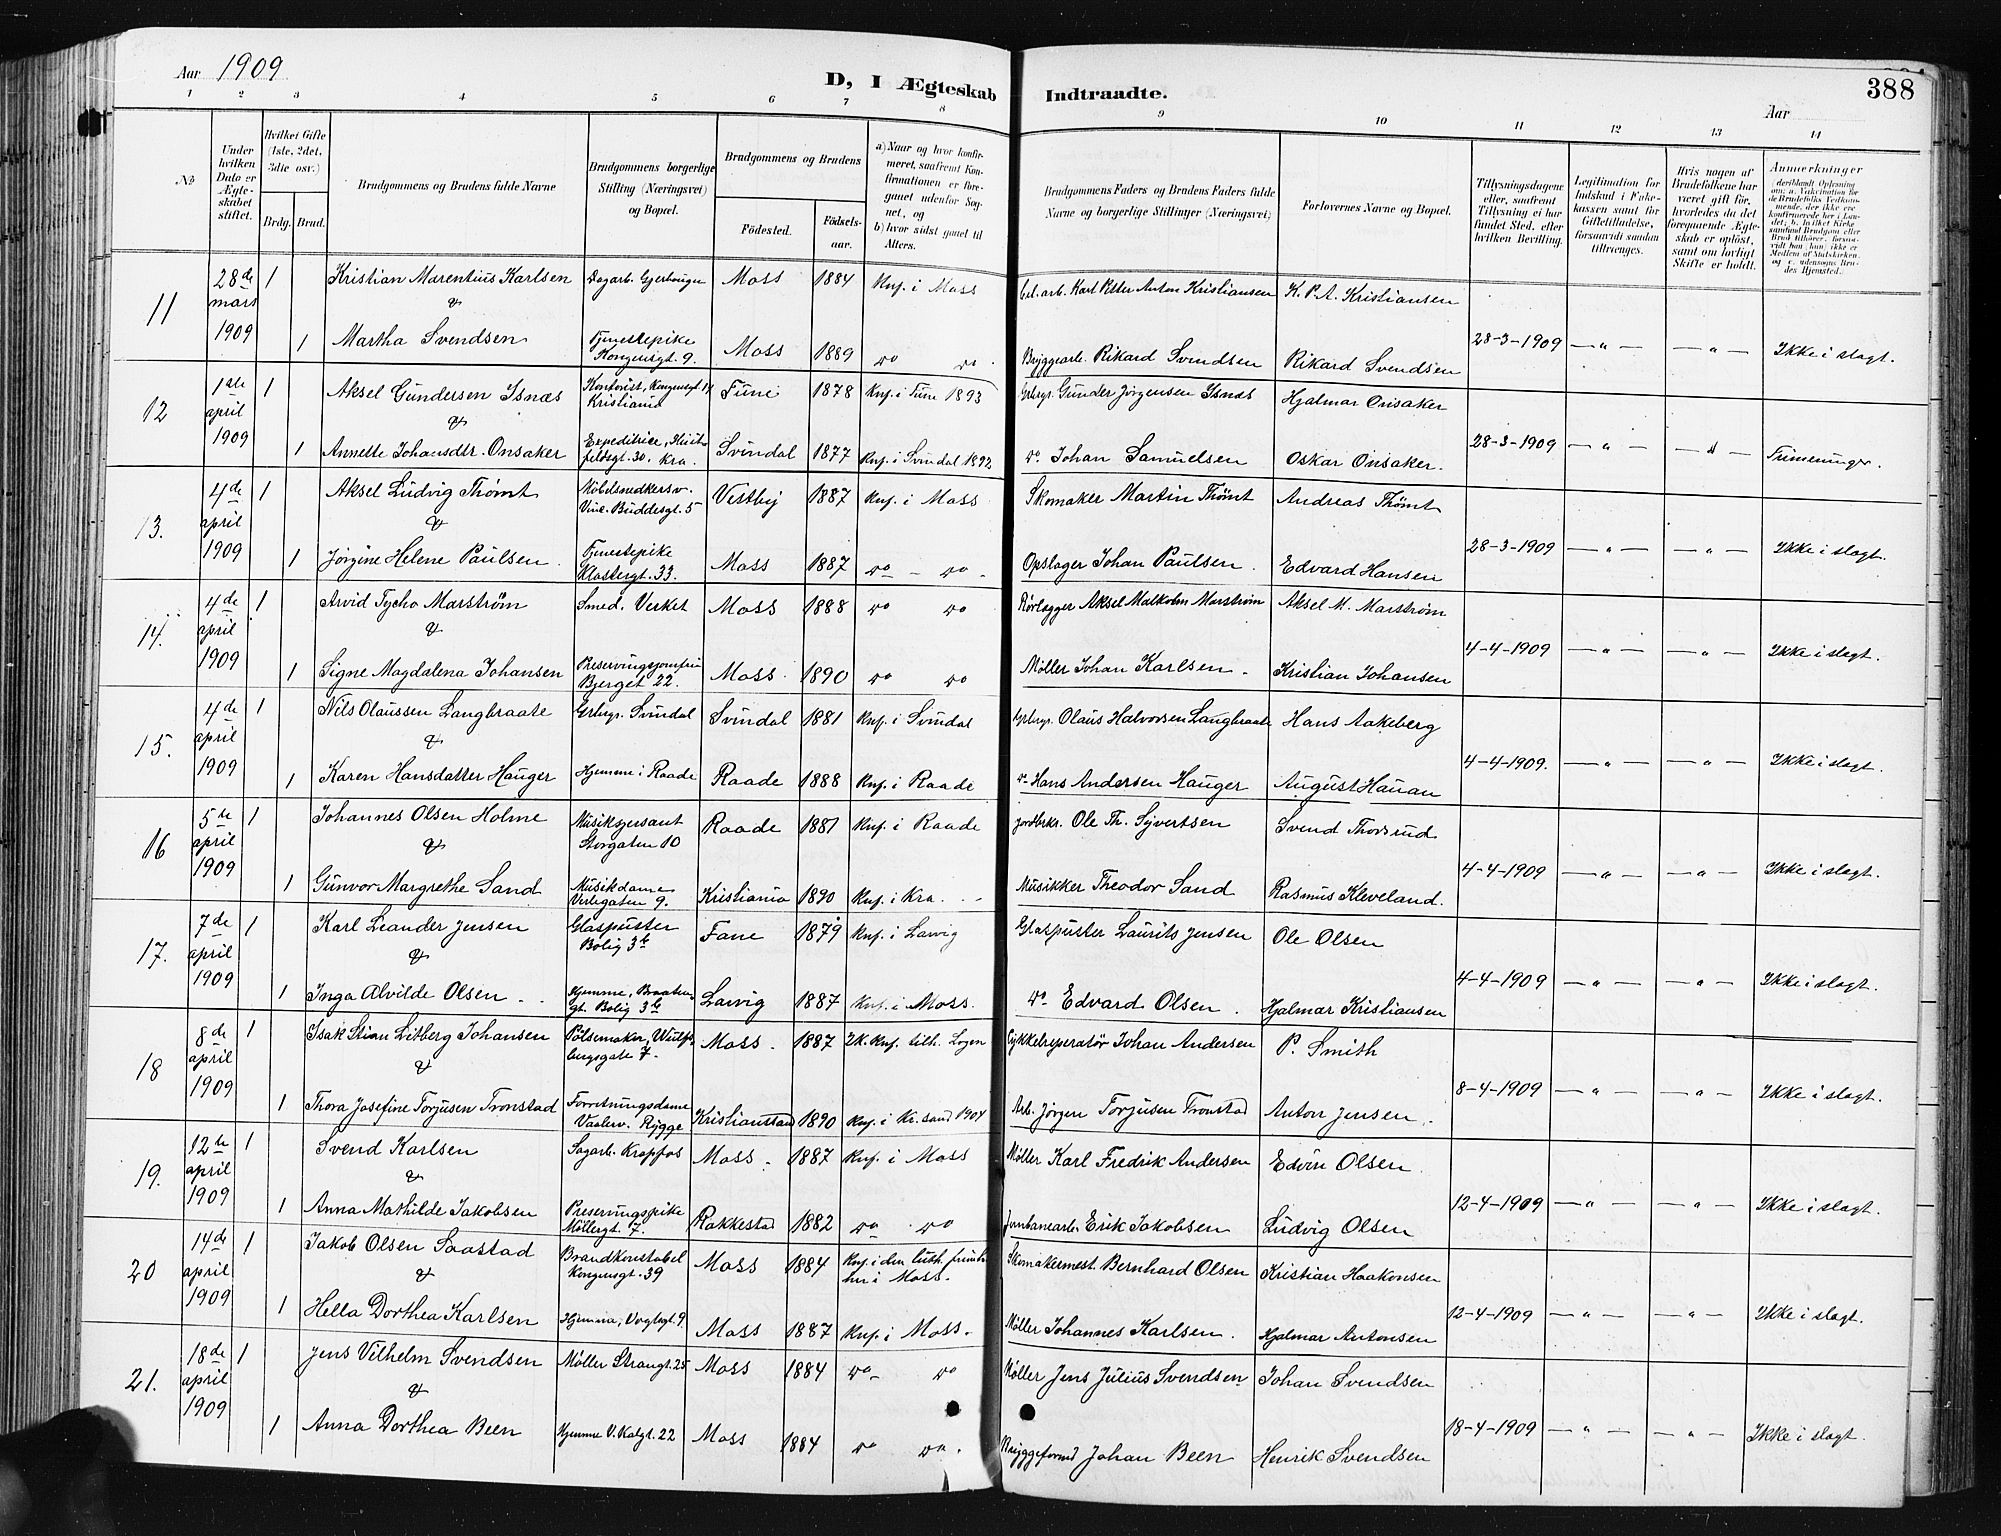 Aar 1909
D, I Ægteskab Indtraadte.
388
Aar
1 2 3 4 5 6 7 8 9 10 11 12 13 14
№
Under hvilken Dato er Ægteskabet stiftet.
Hvilket Gifte (1ste, 2det, 3die osv.)
Brdg. Brud.
Brudgommens og Brudens fulde Navne
Brudgommens borgerlige Stilling (Næringsvei) og Bopæl.
Brudgommens og Brudens
Födested.
Födselsaar.
a) Naar og hvor konfirmeret, saafremt Konfirmationen er foregaaet udenfor Sognet, og
b) hvor sidst gaaet til Alters.
Brudgommens Faders og Brudens Faders fulde Navne og borgerlige Stillinger (Næringsvei)
Forlovernes Navne og Bopæl.
Tillysningsdagene eller, saafremt Tillysning ei har fundet Sted, efter hvilken Bevilling.
Legitimation for Indskud i Enkekassen samt for Giftetilladelse, forsaavidt saadan tiltrænges.
Hvis nogen af Brudefolkene har været gift før, hvorledes da det foregaaende Ægteskab er opløst, samt om lovligt Skifte er holdt.
Anmærkninger
11 28de mars 1909 1 Kristian Marentius Karlsen Dagarb. Gjerhaugen Moss 1884 Knf. i Moss Karl Petter Anton Kristiansen K. P. A. Kristiansen
&
1 Martha Svendsen Tjenestepike Kongensgt. 9. Moss 1889 do do. Bryggearb. Rikard Svendsen Rikard Svendsen 28-3-1909 — " — — " — Ikke i slagt.
12 1ste april 1909 1 Aksel Gundersen Isnæs Kontorist, Kongensgt. Kristiania Tune 1878 Knf. i Tune 1893 Grbrgr. Gunder Jørgensen Isnæs Hjalmar Onsaker
&
1 Annette Johansdtr. Onsaker Expeditrice, Kra. Svindal 1877 Knf. i Svindal 1892 do. Johan Samuelsen Oskar Onsaker. 28-3-1909 — " — — " — Trimeninger.
13. 4de april 1909 1 Aksel Ludvig Thømt Møbelsnedkersv. Vinc. Buddesgt. 5 Vestby 1887 Knf. i Moss Skomaker Martin Thømt Andreas Thømt
&
1 Jørgine Helene Paulsen. Tjenestepike Klostergt. 33. Moss 1887 do — do. Opslager Johan Paulsen. Edvard Hansen 28-3-1909 — " — — " — Ikke i slagt.
14. 4de april 1909 1 Arvid Tycho Marstrøm Smed. Verket Moss 1888 do do Rørlægger Aksel Malkolm Marstrøm Aksel M. Marstrøm
&
1 Signe Magdalena Johansen Preservingsjomfru Bjerget 22. Moss. 1890 do do Møller Johan Karlsen. Kristian Johansen 4-4-1909 — " — — " — Ikke i slagt.
15. 4de april 1909 1 Nils Olaussen Langbraate Grbrgr. Svindal Svindal 1881 Knf. i Svindal Grbrgr. Olaus Halvorsen Langbraate Hans Aakeberg
&
1 Karen Hansdatter Hauger Hjemme i Raade Raade 1888 Knf. i Raade do Hans Andersen Hauger August Hauan 4-4-1909. — " — — " — Ikke i slagt.
16 5te april 1909 1 Johannes Olsen Holme Musiksjersant Storgaten 10 Raade 1881 Knf. i Raade jordbrkr. Ole Th. Syvertsen Svend Thorsrud
&
1 Gunvor Margrethe Sand Musikdame Verlegaten 9. Kristiania 1890 Knf. i Kra. Musikker Theodor Sand Rasmus Kleveland. 4-4-1909 — " — — " — Ikke i slagt.
17. 7de april 1909 1 Karl Leander Jensen Glaspuster Bolig 3 Fane 1879 Knf. i Larvig Glaspuster Laurits Jensen Ole Olsen
&
1 Inga Alvilde Olsen Hjemme, gt. Bolig 3 Larvig 1887 Knf. i Moss. do. Edvard Olsen. Hjalmar Kristiansen 4-4-1909 — " — — " — Ikke i slagt.
18 8de april 1909 1 Isak Stian Litberg Johansen Pølsemaker, Wulfsbergsgate 7. Moss. 1887 Knf. Cykkelreperatör Johan Andersen P. Smith
&
1 Thora Josefine Torjusen Tronstad Forretningsdame Vaalerv. Rygge Kristianstad 1890 Knf. i Kr.sand 1904 Arb. Jörgen Torjusen Tronstad Anton Jensen. 8-4-1909 — " — — " — Ikke i slagt.
19. 12te april 1909 1 Svend Karlsen Sagarb. Krapfos Moss. 1887 Knf. i Moss Møller Karl Fredrik Andersen Edvin Olsen
&
1 Anna Mathilde Jakobsen Preservingspike Møllergt. 7. Rakkestad 1882 do do Jernbanearb. Erik Jakobsen Ludvig Olsen 12-4-1909 — " — — " — Ikke i slagt.
20 14de april 1909 1 Jakob Olsen Saastad Brandkonstabel Kongensgt. 39 Moss 1884 Knf. i den luth. i Moss. Skomakermest. Bernhard Olsen Kristian Haakonsen
&
1 Hella Dorthea Karlsen Hjemme, Vogtsgt. 9 Moss 1887 Knf. i Moss. Møller Johannes Karlsen. Hjalmar Antonsen 12-4-1909 — " — — " — Ikke i slagt.
21. 18de april 1909 1 Jens Vilhelm Svendsen Møller Strangt. 25 Moss 1884 do do Møller Jens Julius Svendsen Johan Svendsen
&
1 Anna Dorthea Been Hjemme V. Kalgt. 22 Moss 1884 do do. Bryggeformd. Johan Been Henrik Svendsen 18-4-1909 — " — — " — Ikke i slagt.